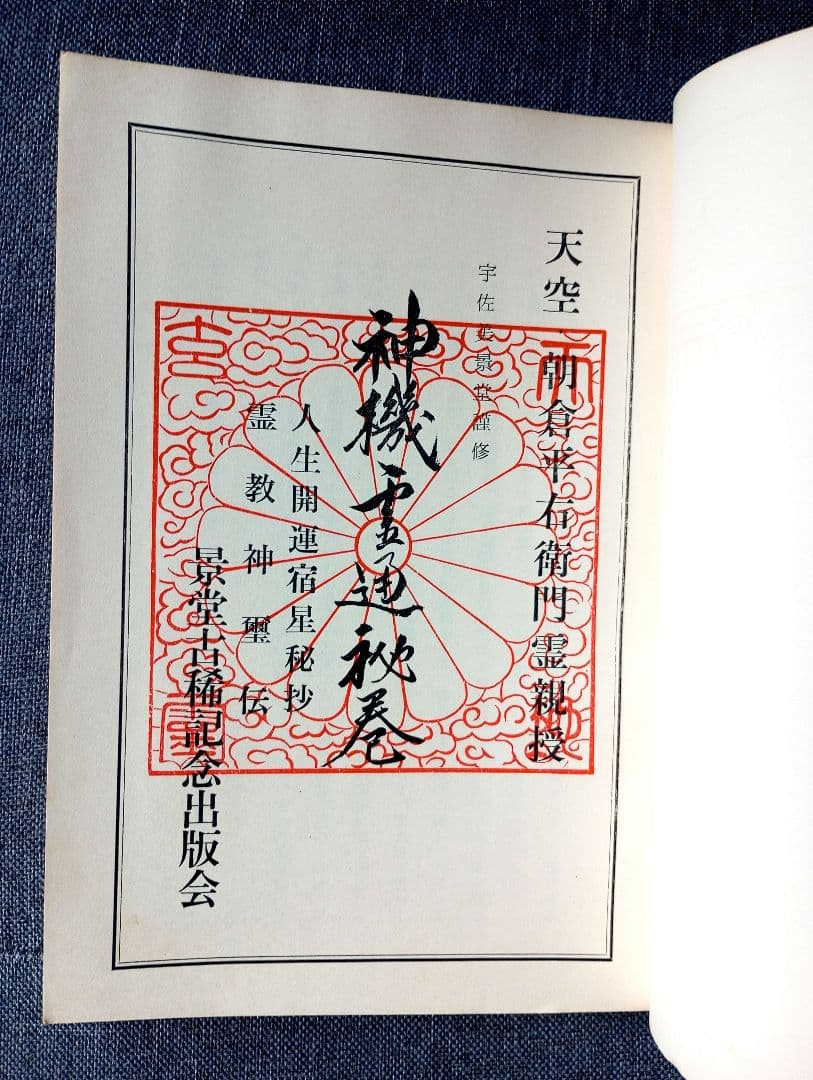 天空・朝倉平右衛門霊親授
宇佐美景堂謹修
神機霊通秘巻
人生開運宿星秘抄
霊教神璽伝
景堂古稀記念出版会